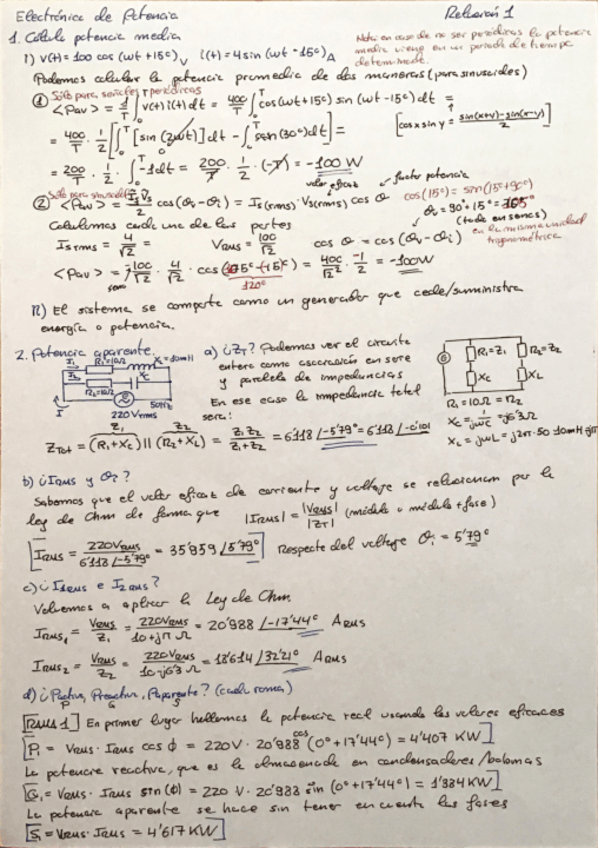 Electrónica de Potencia Relación 1
1. Calcula potencia media
Nota: en caso de no ser periódicas la potencia media viene en un periodo de tiempo determinado.
i) v(t) = 100 cos (wt + 15º) V i(t) = 4 sin (wt - 15º) A
Podemos calcular la potencia promedio de dos maneras (para sinusoides)
① Sólo para señales periódicas
<Pav> = 1/T ∫₀ᵀ v(t) i(t) dt = 400/T ∫₀ᵀ cos(wt+15º) sin (wt-15º) dt =
[cos x sin y = (sin(x+y) - sin(x-y))/2]
= 400/T · 1/2 [∫₀ᵀ [sin (2wt)] dt - ∫₀ᵀ sen(30º) dt] =
= 200/T · 1/2 · ∫₀ᵀ -1 dt = 200/T · 1/2 · (-T) = -100 W
② Sólo para sinusoides valor eficaz factor potencia
<Pav> = Is Vs/2 cos (θv - θi) = Is(rms) · Vs(rms) cos θ
cos(15º) = sin(15º+90º)
θv = 90º + 15º = 105º
(todo en senos)
en la misma unidad trigonométrica
Calculamos cada una de las partes
Isrms = 4/√2 = Vrms = 100/√2 cos θ = cos (θv - θi)
<Pav> = 100/√2 · 4/√2 · cos (105º - (-15)º) = 400/√2² · -1/2 = -100W
120º
R) El sistema se comporta como un generador que cede/suministra
energía o potencia.
2. Potencia aparente.
I₁ R₁=10Ω XL=10mH
I₂ R₂=10Ω XC
I 220 Vrms 50Hz
a) ¿ZT? Podemos ver el circuito
entero como asociación en serie
y paralelo de impedancias
En ese caso la impedancia total
será:
R₁=Z₁ R₂=Z₂
XC XL
R₁ = 10Ω = R₂
XC = 1/jwC = -j6'3Ω
XL = jwL = j2π·50·10mH = jπ
ZTot = (R₁+XC) || (R₂+XL) = Z₁Z₂/(Z₁+Z₂) = 6'118 /-5'79º = 6'118 /-0'101
Z₁ Z₂
b) ¿Irms y θi?
Sabemos que el valor eficaz de corriente y voltaje se relacionan por la
ley de Ohm de forma que |Irms| = |Vrms|/|ZT| (módulo o módulo + fase)
[Irms = 220Vrms/6'118 /-5'79º = 35'959 /5'79º] Respecto del voltaje θi = 5'79º
c) ¿I1rms e I2rms?
Volvemos a aplicar la Ley de Ohm
Irms₁ = Vrms/Z₁ = 220Vrms/10+jπ Ω = 20'988 /-17'44º Arms
Irms₂ = Vrms/Z₂ = 220Vrms/10-j6'3 Ω = 18'614 /32'21º Arms
d) ¿Pactiva, Preactiva, Paparente? (cada rama)
P Q S
[Rama 1] En primer lugar hallamos la potencia real usando los valores eficaces
[P₁ = Vrms · Irms cos ϕ = 220V · 20'988 cos (0º + 17'44º) = 4'407 KW]
La potencia reactiva, que es la almacenada en condensadores/bobinas
[Q₁ = Vrms · Irms sin (ϕ) = 220 V · 20'988 sin (0º + 17'44º) = 1'384 KW]
La potencia aparente se hace sin tener en cuenta las fases
[S₁ = Vrms · Irms = 4'617 KW]